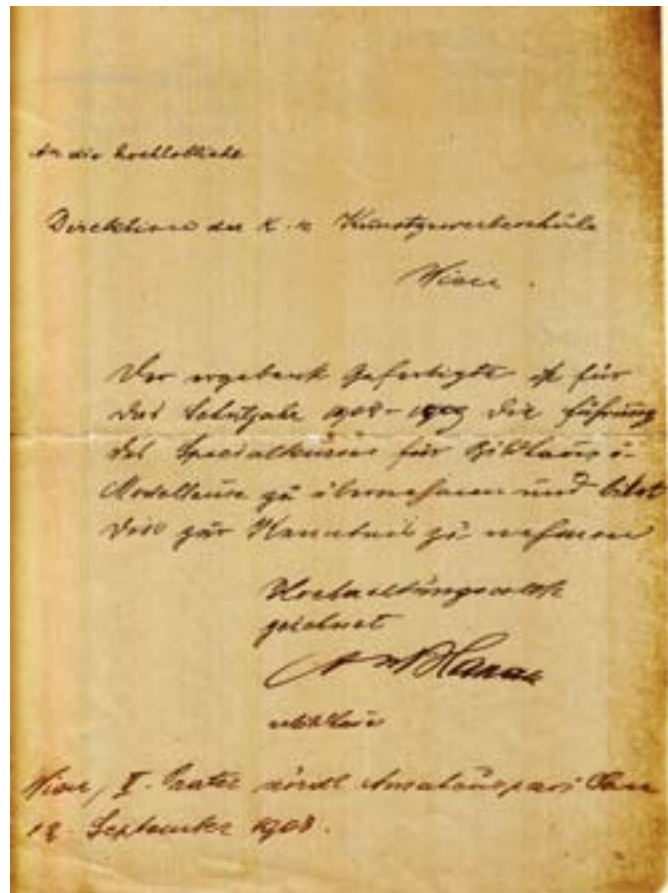 An die hochlöbliche
Direktion der K. K. Kunstgewerbeschule
Wien.
Der ergebenst Gefertigte für
das Schuljahr 1908-1909 die Führung
des Specialkurses für
zu übernehmen und bittet
dies zur Kenntnis zu nehmen
Hochachtungsvollst
zeichnet
Hanak
Wien, II. Prater nördl.
September 1908.